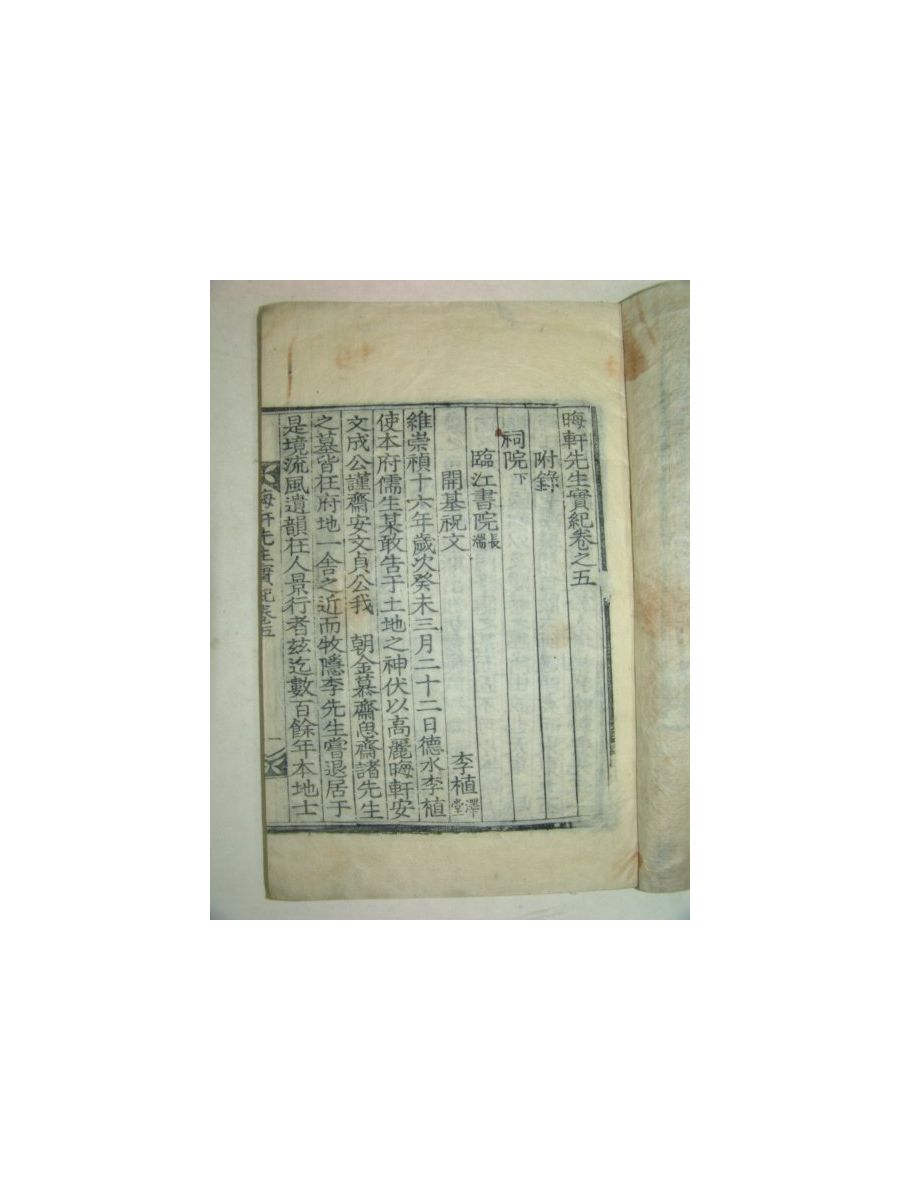 晦軒先生實紀卷之五
附錄
祠院下
臨江書院長湍
開基祝文
李植澤堂
維崇禎十六年歲次癸未三月二十二日德水李植
使本府儒生某敢告于土地之神伏以高麗晦軒安
文成公謹齋安文貞公我 朝金慕齋思齋諸先生
之墓皆在府地一舍之近而牧隱李先生嘗退居于
是境流風遺韻在人景行者玆迄數百餘年本地士
晦軒先生實紀卷五
一